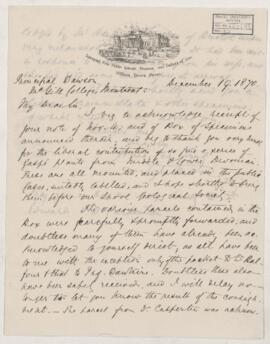 December 19. 1870
Principal Dawson
McGill College, Montreal.
My Dear Sir,
I beg to acknowledge receipt of
your note of Nov. and of Box of specimens
announced therein, and beg to thank you very much
for the liberal contribution of so fine a series of
Gaspé plants from Middle & Lower Devonian.
These are all mounted, and placed in the public
Cases, suitably labelled, and I hope shortly to bring
them before our Local Geological Society.
The various parcels contained in the
Box were carefully & promptly forwarded, and
doubtless many of them have already been ac-
knowledged to yourself direct, as all have been
to me with the exception only of the packet to Dr Bal-
four & that to Prof. Dawkins. Doubtless these also
have been safely received, and I will delay no
longer to let you know the result of the consign-
ment. The parcel from Dr Carpenter was acknow-